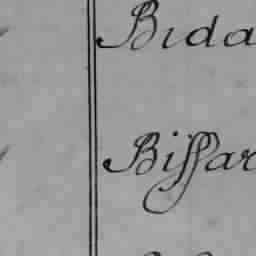 Bida
Biſſar